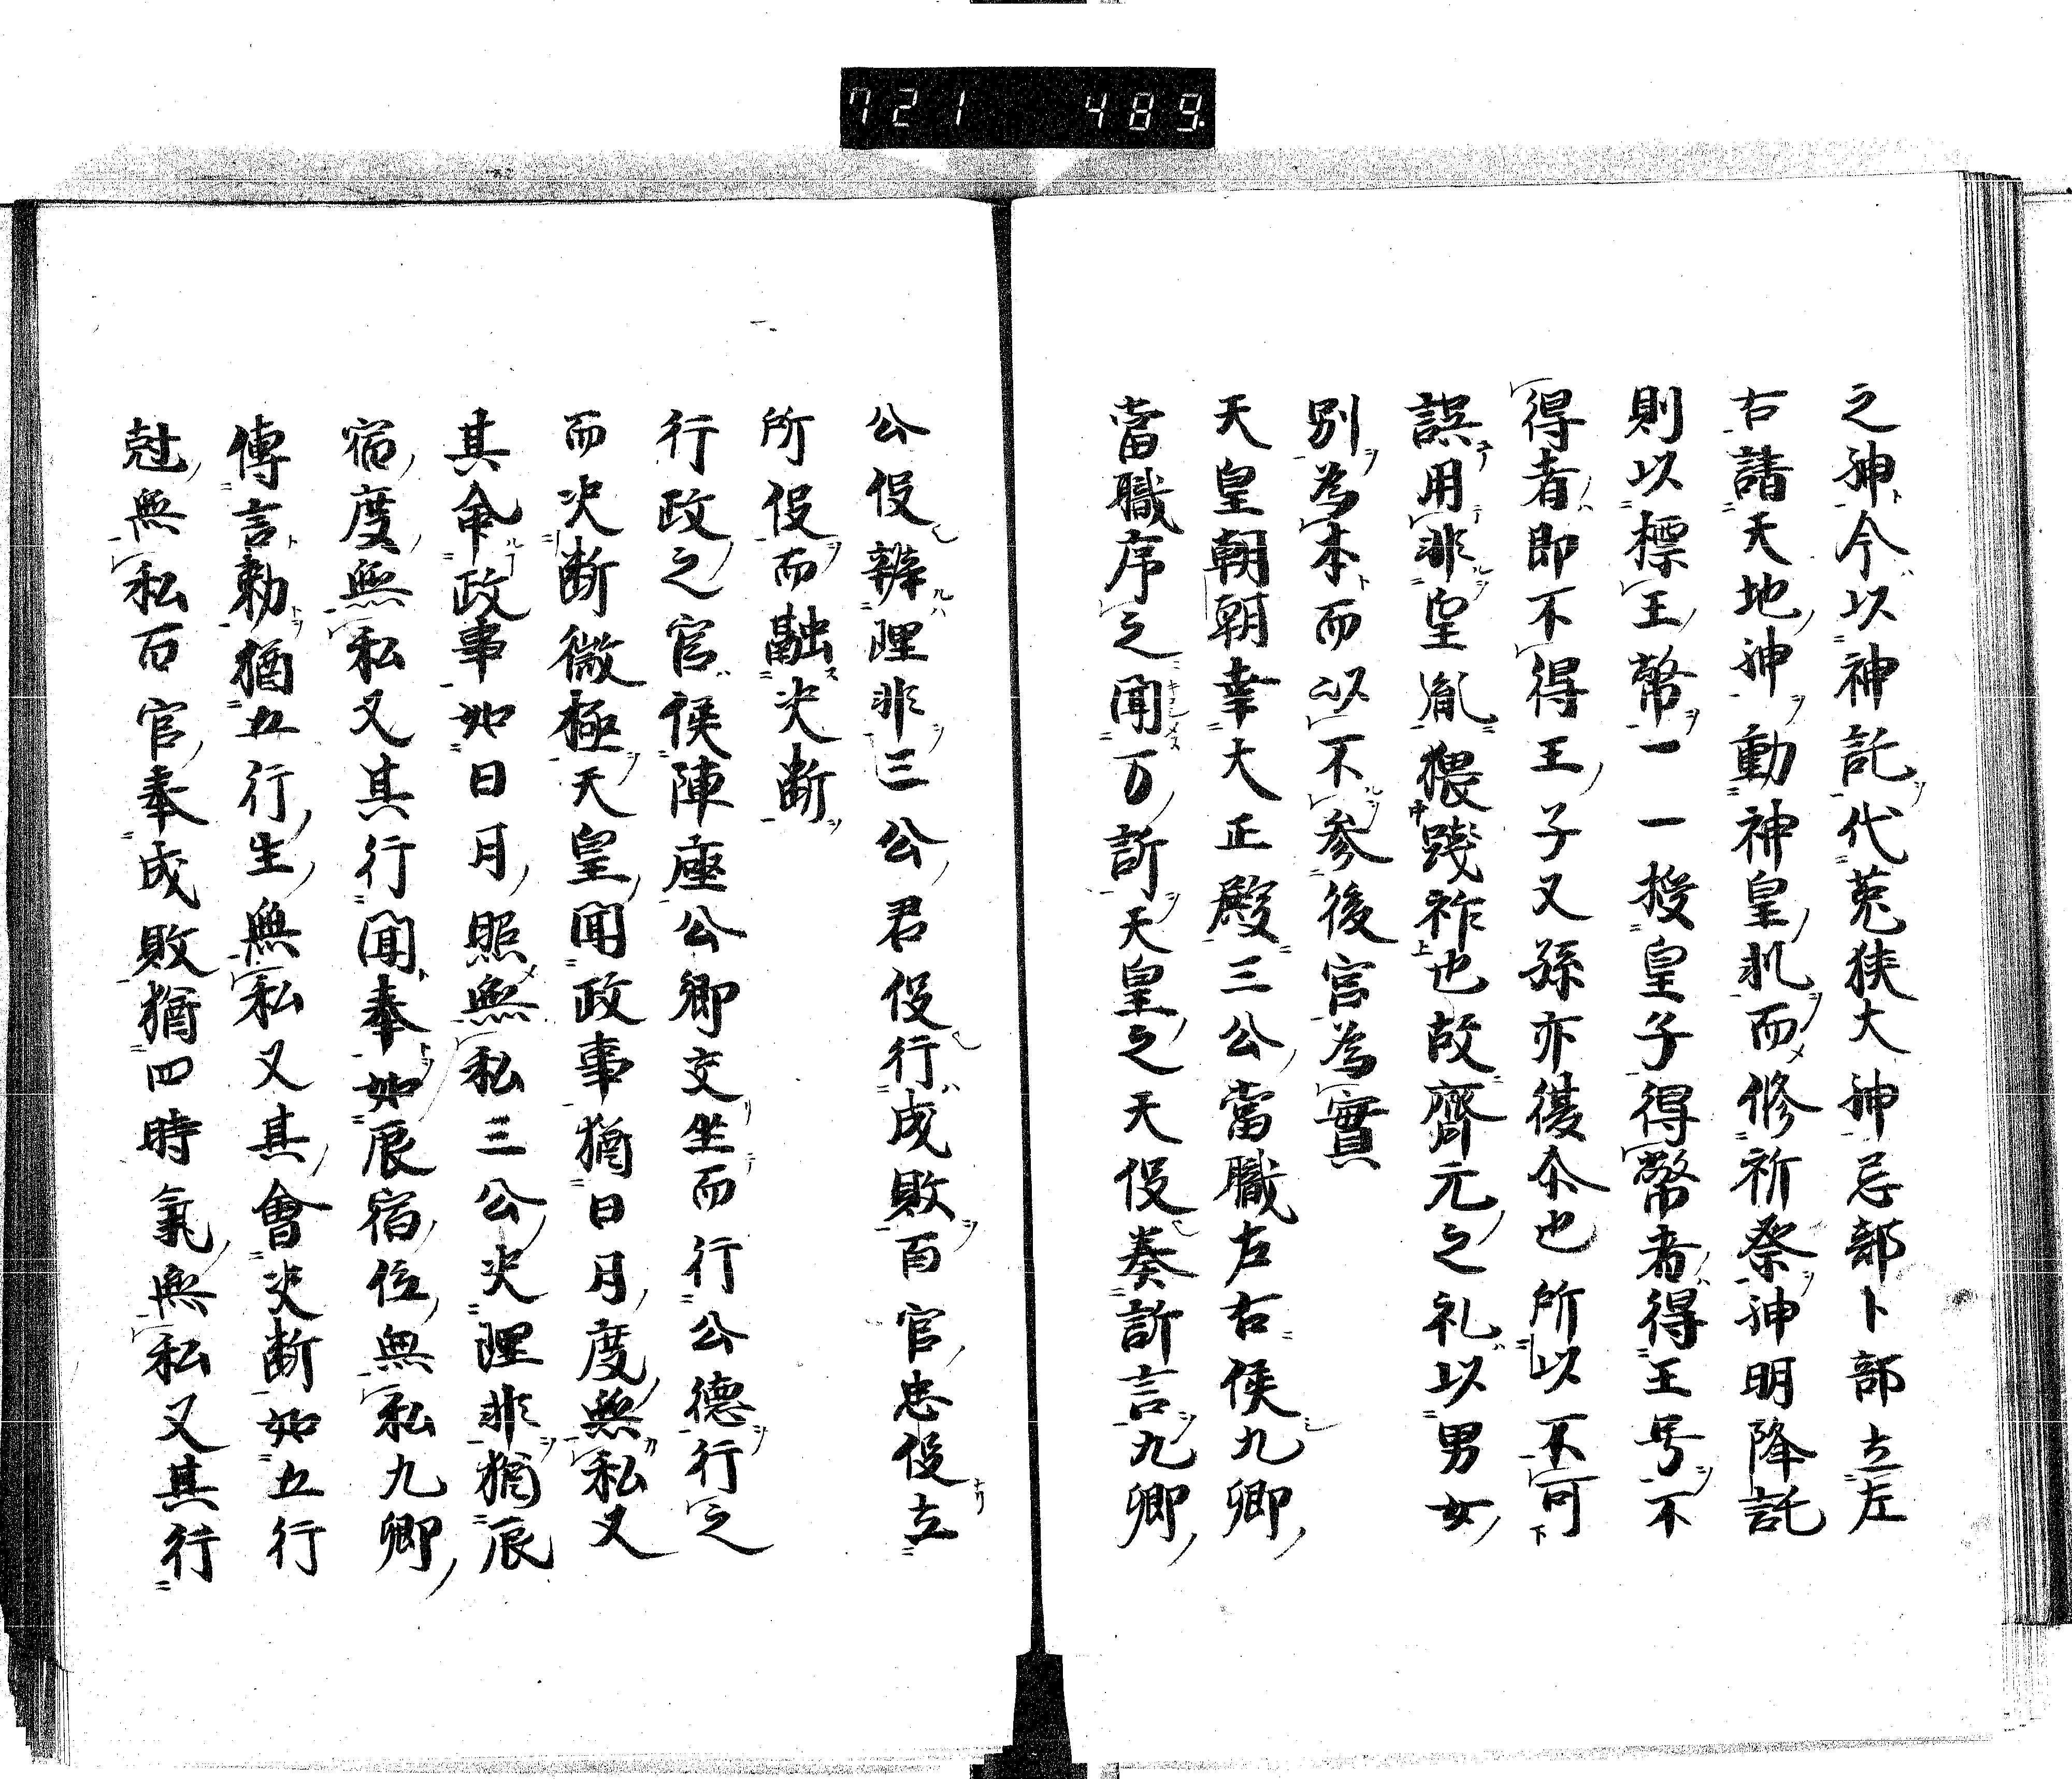 721 489.
之神今以神託代菟狭大神忌部卜部立左
右請天地神動神皇机而修祈祭神明降託
則以標王幣一一授皇子得幣者得王号不
得者即不得王子又孫亦復尒也所以不可
誤用非皇胤猥踐祚也故齊元之礼以男女
別為本而以不参後宮為實
天皇朝朝幸大正殿三公當職左右侯九卿
當職序之聞万訴天皇之天伇奏訴言九卿
公伇辨理非三公君伇行成敗百官忠伇立
所伇而融决断
行政之官侯陣座公卿交坐而行公德行之
而决断微極天皇聞政事猶日月度無私又
其命政事如日月照無私三公决理非猶辰
宿度無私又其行聞奉如辰宿位無私九卿
傳言勅猶五行生無私又其會决断如五行
尅無私百官奉成敗猶四時氣無私又其行